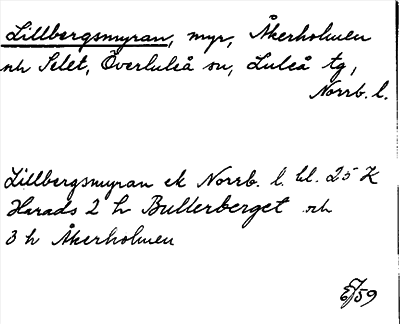 Lillbergsmyran, myr, Åkerholmen
och Selet, Överluleå sn, Luleå tg,
Norrb. l.
Lillbergsmyran ek Norrb. l. bl. 25 K
Harads 2 h Bullerberget och
3 h Åkerholmen
/59